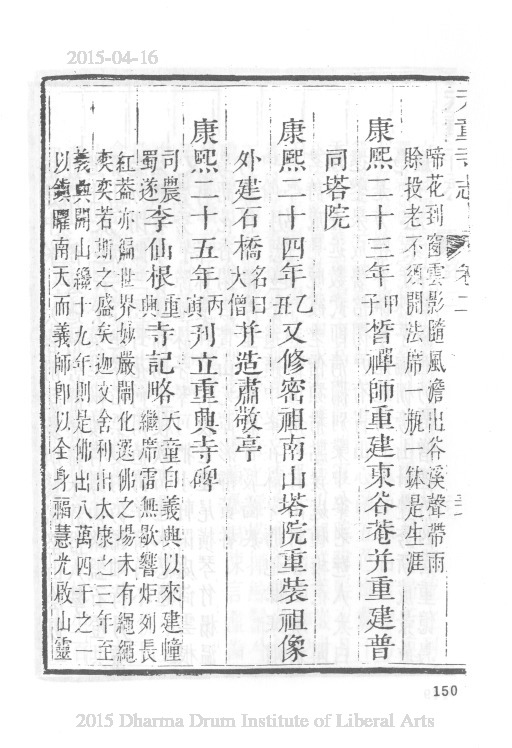 2015-04-16
天童寺志 卷二
啼花到窗雲影隨風簷出谷溪聲帶雨
賒投老不須開法席一瓶一鉢是生涯
康熙二十三年甲子晳禪師重建東谷菴并重建普
同塔院
康熙二十四年乙丑又修密祖南山塔院重裝祖像
外建石橋名曰大僧并造肅敬亭
康熙二十五年丙寅刋立重興寺碑
司農李仙根重興寺記略天童自義興以來建幢
蜀遂繼席雷無歇響炬列長
紅葢亦徧世界妙嚴開化選佛之場未有繩繩
奕奕若斯之盛矣迦文舍利出太康之三年至
義興開山纔十九年則是佛出八萬四千之一
以鎮曜南天而義師卽以全身福慧光啟山靈
150
2015 Dharma Drum Institute of Liberal Arts